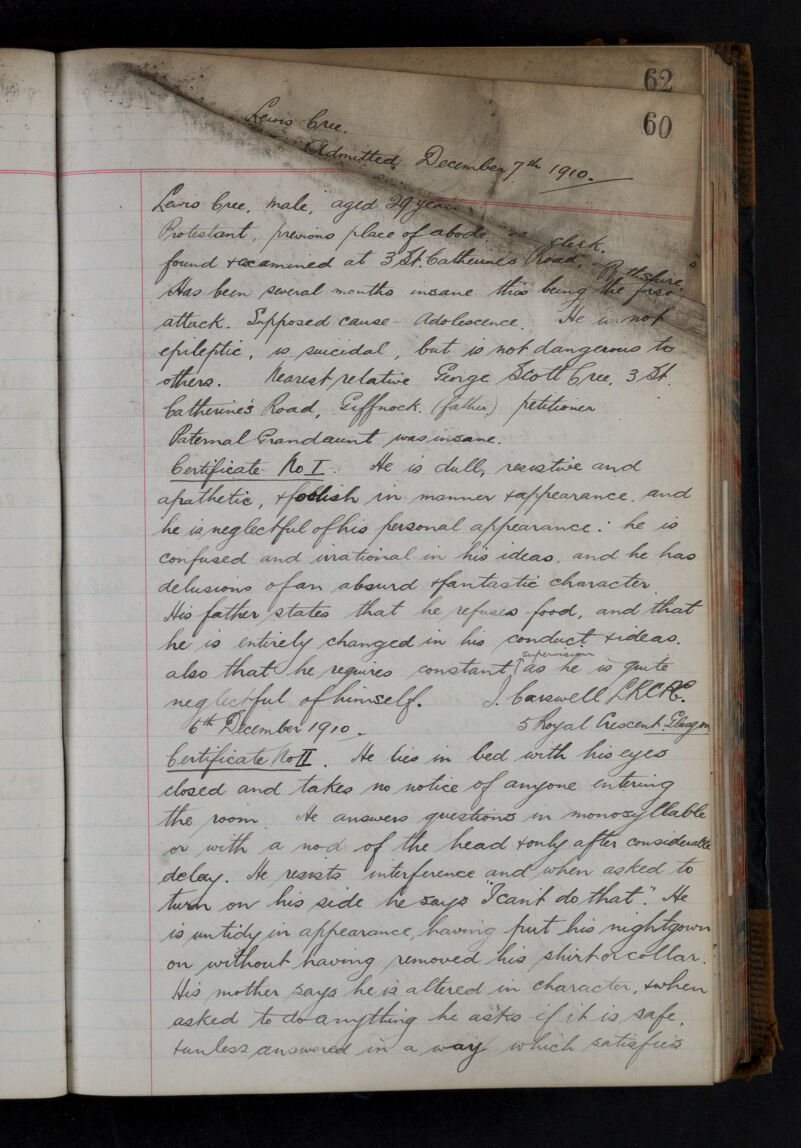 62
60
Lewis Cree.
Admitted December 7th 1910.
Lewis Cree, male, aged 29 years
Protestant, previous place of abode, clerk.
found & examined at 3 St. Catherine's Road,
Has been several months insane this being the first
attack. Supposed cause - Adolescence. He is not
epileptic, is suicidal, but is not dangerous to
others. Nearest relative George Scott Cree, 3 St.
Catherine's Road, Giffnock. (father) petitioner
Paternal Grandaunt was insane.
Certificate No I. He is dull, resistive and
apathetic, & foolish in manner & appearance, and
he is neglectful of his personal appearance: he is
confused and irrational in his ideas, and he has
delusions of an absurd & fantastic character.
His father states that he refuses food, and that
he is entirely changed in his conduct & ideas.
also that he requires constant supervision as he is quite
neglectful of himself. J. Carswell LRCPE.
6th December 1910. 5 Royal Crescent. Glasgow
Certificate No II. He lies in bed with his eyes
closed and takes no notice of anyone entering
the room. He answers questions in monosyllable
or with a nod of the head & only after considerable
delay. He resists interference and when asked to
turn on his side he says "I can't do that". He
is untidy in appearance, having put his nightgown
on without having removed his shirt or collar.
His mother says he is altered in character, & when
asked to do anything he asks if it is safe,
& unless answered in a way which satisfies